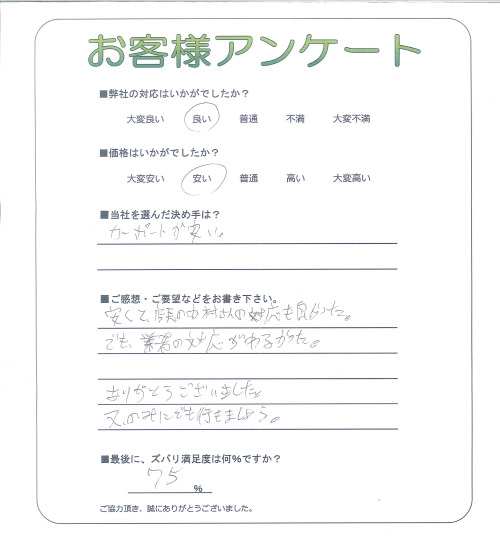 お客様アンケート
■弊社の対応はいかがでしたか？
大変良い 良い 普通 不満 大変不満
■価格はいかがでしたか？
大変安い 安い 普通 高い 大変高い
■当社を選んだ決め手は？
カーポートが安い。
■ご感想・ご要望などをお書き下さい。
安くて、顔の中村さんの対応も良かった。
でも、業者の対応がわるかった。
ありがとうございました。
又、のみにでも行きましょう。
■最後に、ズバリ満足度は何%ですか？
75 %
ご協力頂き、誠にありがとうございました。